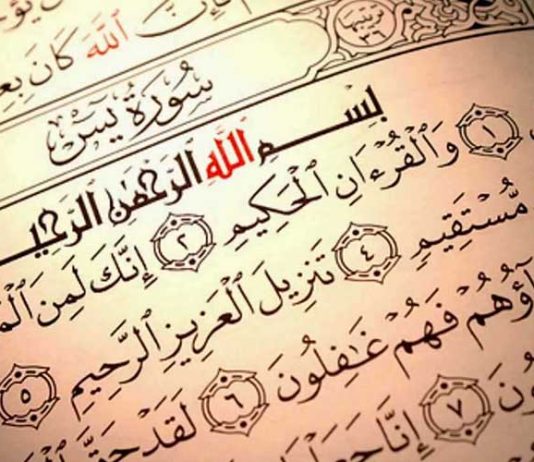 ٱللَّهَ كَانَ بِعِ
ترتيبها ٣٦
سُورَةُ يسٓ
بِسْمِ ٱللَّهِ ٱلرَّحْمَٰنِ ٱلرَّحِي
١ وَٱلْقُرْءَانِ ٱلْحَكِيمِ ٢ إِنَّكَ لَمِنَ ٱلْمُ
مُّسْتَقِيمٍ ٤ تَنزِيلَ ٱلْعَزِيزِ ٱلرَّحِيمِ ٥
آؤُهُمْ فَهُمْ غَٰفِلُونَ ٦ لَقَدْ حَقَّ
ونَ ٧ إِنَّا جَعَلْنَا